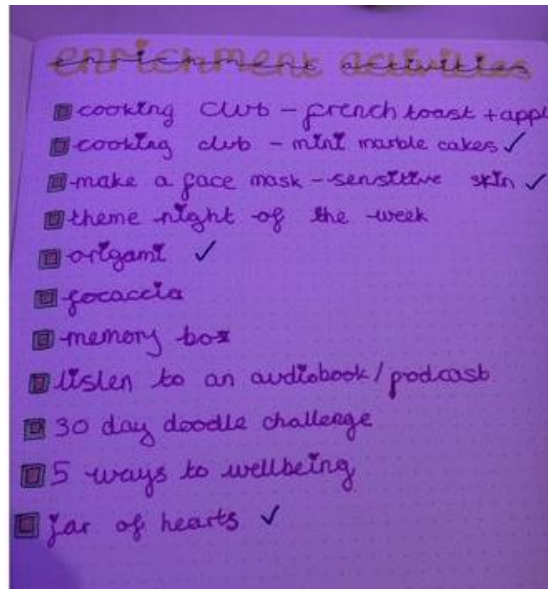 enrichment activities
cooking club - french toast + appl
cooking club - mini marble cakes ✓
make a face mask - sensitive skin ✓
theme night of the week
origami ✓
focaccia
memory box
listen to an audiobook/podcast
30 day doodle challenge
5 ways to wellbeing
jar of hearts ✓